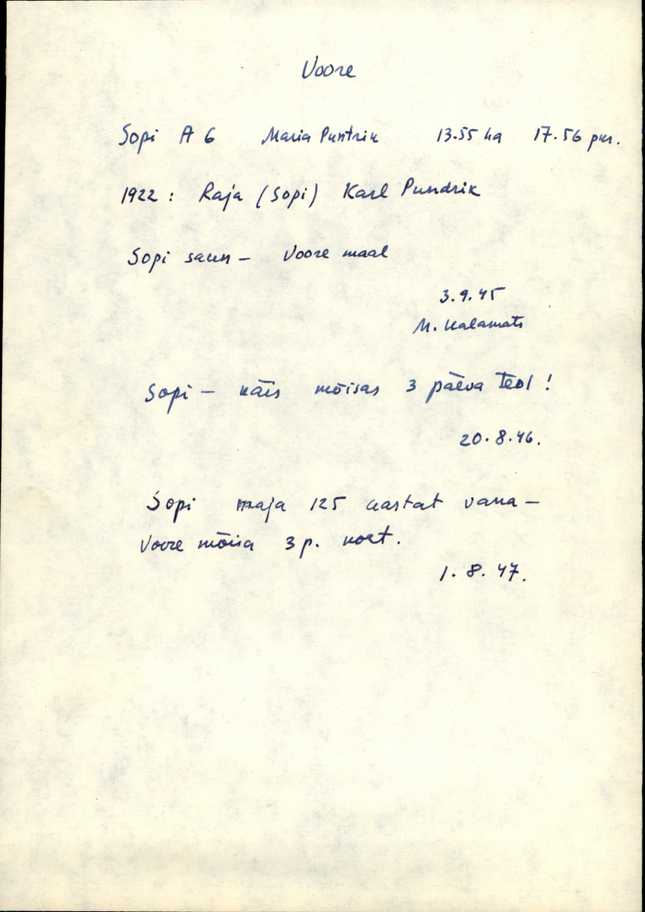 Voore
Sopi A 6 Maria Puntrik 13.55 ha 17.56 pur.
1922 : Raja (Sopi) Karl Pundrik
Sopi saun – Voore maal
3.9.45
M. Kalamats
Sopi – käis mõisas 3 päeva teol!
20.8.46.
Sopi maja 125 aastat vana –
Voore mõisa 3 p. koet.
1.8.47.